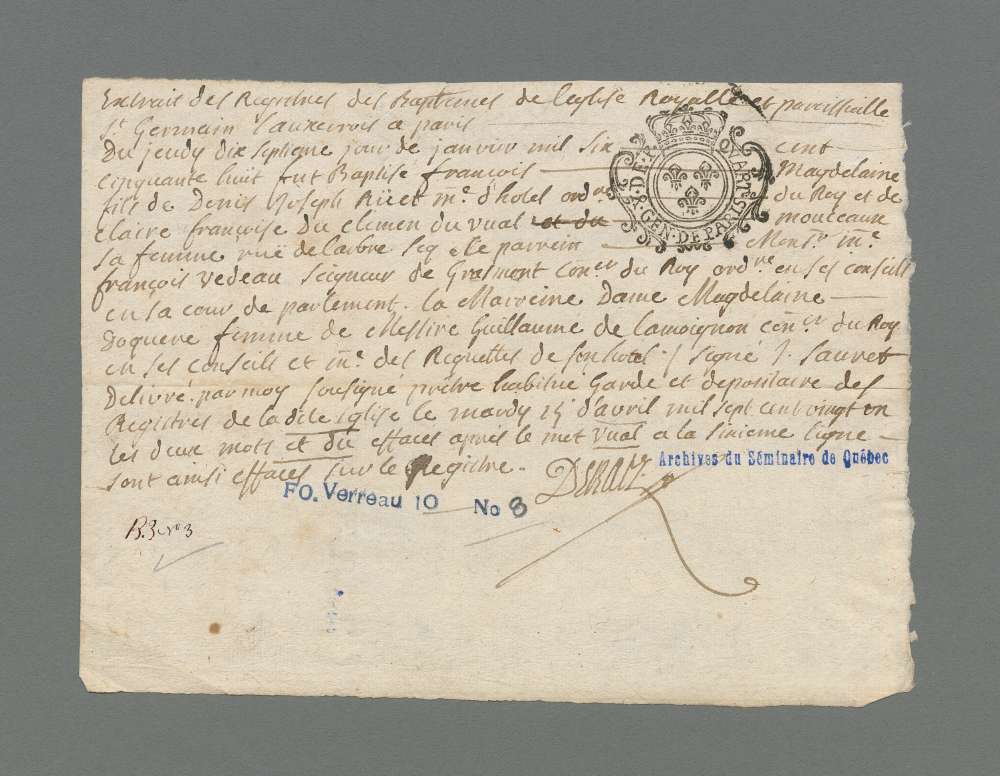 Extrait des Registres des Baptemes de leglise Royalle et paroissialle
St Germain Lauxerrois a paris
Du jeudy dix septiême jour de janvier mil six cent
cinquante huit fut Baptisé françois Magdelaine
fils de Denis Joseph Rüet me. d'hotel ordre du Roy et de
claire françoise Du clement du vual et du mouceaux
sa femme rüe de larbre seq. le parrein Monsr. me.
françois vedeau seigneur de Grasmont coner du Roy ordre en ses conseils
en sa cour de parlement. la Marreine Dame Magdelaine
femme de Messire Guillaume de Lamoignon coner du Roy
en ses conseils et me. des Requettes de son hotel ./ signé J. Sauvet
Delivré par moy sousigné prêtre habitué Garde et depositaire des
Registres de la dite Eglise le mardy 15 d'avril mil sept cent vingt un
les deux mots et du effacés après le mot vual a la sixieme ligne
sont ainsi effacés sur le Registre.
GEN. DE PARIS
Archives du Séminaire de Québec
FO. Verreau 10 No 3